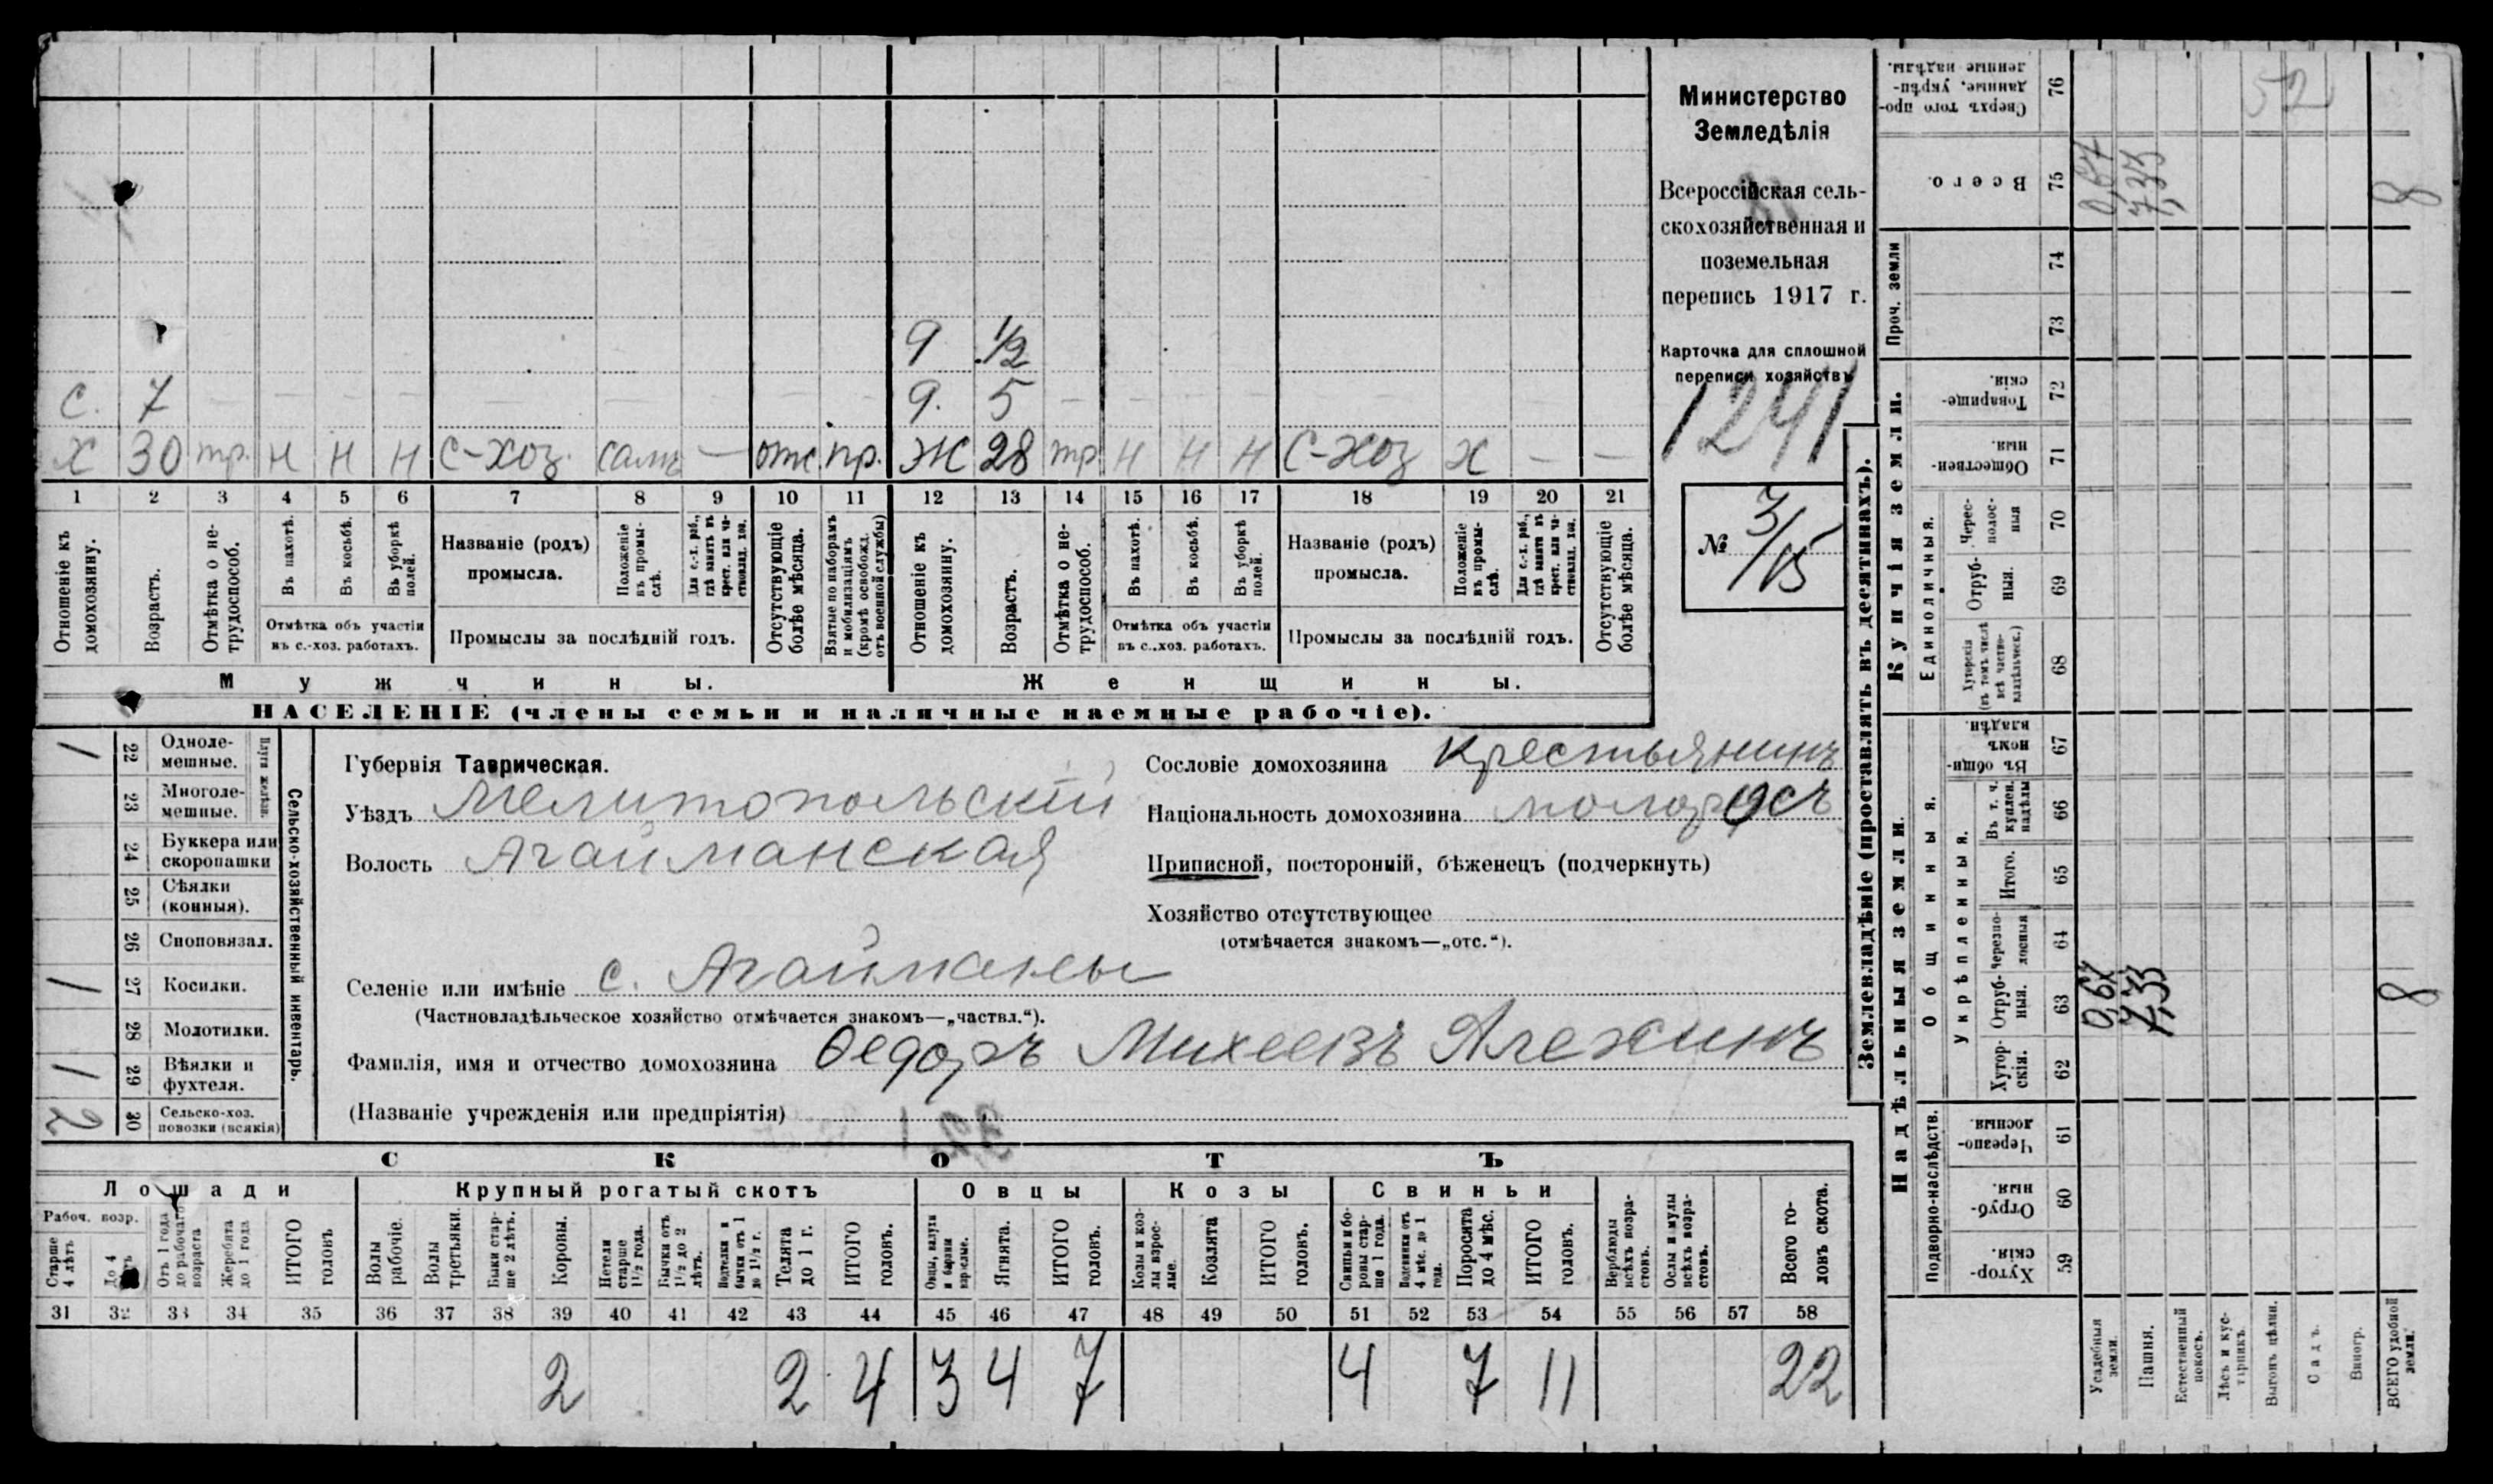 Министерство
Земледѣлія
Всероссійская сель-
скохозяйственная и
поземельная
перепись 1917 г.
Карточка для сплошной
переписи хозяйствъ
1241
№ 3/15
9 1/2
С. 7 — — — — — — — — — 9. 5 — — — — — — — —
Х 30 тр. н н н с-хоз. самъ — отс. пр. Ж 28 тр н н н с-хоз х — —
1 2 3 4 5 6 7 8 9 10 11 12 13 14 15 16 17 18 19 20 21
Отношеніе къ домохозяину.
Возрастъ.
Отмѣтка о не-трудоспособ.
Въ пахотѣ.
Въ косьбѣ.
Въ уборкѣ полей.
Отмѣтка объ участіи
въ с.-хоз. работахъ.
Названіе (родъ)
промысла.
Положеніе въ промы-слѣ.
Для с.-х. раб., гдѣ занятъ въ крест. или ча-стновлад. хоз.
Промыслы за послѣдній годъ.
Отсутствующіе болѣе мѣсяца.
Взятые по наборамъ и мобилизаціямъ (кромѣ освобожд. отъ военной службы)
Отношеніе къ домохозяину.
Возрастъ.
Отмѣтка о не-трудоспособ.
Въ пахотѣ.
Въ косьбѣ.
Въ уборкѣ полей.
Отмѣтка объ участіи
въ с.-хоз. работахъ.
Названіе (родъ)
промысла.
Положеніе въ промы-слѣ.
Для с.-х. раб., гдѣ занята въ крест. или ча-стновлад. хоз.
Промыслы за послѣдній годъ.
Отсутствующіе болѣе мѣсяца.
Мужчины. Женщины.
НАСЕЛЕНІЕ (члены семьи и наличные наемные рабочіе).
Сельско-хозяйственный инвентарь.
Плуги желѣзн.
1 22 Одноле-мешные.
23 Многоле-мешные.
24 Буккера или скоропашки
25 Сѣялки (конныя).
26 Сноповязал.
1 27 Косилки.
28 Молотилки.
1 29 Вѣялки и фухтеля.
2 30 Сельско-хоз. повозки (всякія)
Губернія Таврическая.
Уѣздъ Мелитопольскій
Волость Агайманская
Селеніе или имѣніе с. Агайманы
(Частновладѣльческое хозяйство отмѣчается знакомъ—„частвл.“).
Фамилія, имя и отчество домохозяина Ѳедоръ Михеевъ Алехинъ
(Названіе учрежденія или предпріятія)
Сословіе домохозяина крестьянинъ
Національность домохозяина
Приписной, посторонній, бѣженецъ (подчеркнуть)
Хозяйство отсутствующее
(отмѣчается знакомъ—„отс.“).
СКОТЪ
Лошади Крупный рогатый скотъ Овцы Козы Свиньи
Рабоч. возр.
Старше 4 лѣтъ
До 4 лѣтъ
Отъ 1 года до рабочаго возраста
Жеребята до 1 года
ИТОГО головъ
Волы рабочіе.
Волы третьяки.
Быки стар-ше 2 лѣтъ.
Коровы.
Нетели старше 1½ года.
Бычки отъ 1½ до 2 лѣтъ.
Подтелки и бычки отъ 1 до 1½ г.
Телята до 1 г.
ИТОГО головъ.
Овцы, валухи и бараны взрослые.
Ягнята.
ИТОГО головъ.
Козы и коз-лы взрос-лые.
Козлята
ИТОГО головъ.
Свиньи и бо-ровы стар-ше 1 года.
Подсвинки отъ 4 мѣс. до 1 года.
Поросята до 4 мѣс.
ИТОГО головъ.
Верблюды всѣхъ возра-стовъ.
Ослы и мулы всѣхъ возра-стовъ.
Всего го-ловъ скота.
31 32 33 34 35 36 37 38 39 40 41 42 43 44 45 46 47 48 49 50 51 52 53 54 55 56 57 58
2 2 4 3 4 7 4 7 11 22
Землевладѣніе (проставлять въ десятинахъ).
Купчія земли.
Надѣльныя земли.
52
76 Сверхъ того про-данные, укрѣп-ленные надѣлы.
75 Всего. 0,67 7,33 8
Проч. земли
74
73
72 Товарище-скія.
71 Обществен-ныя.
Единоличныя.
70 Черес-полос-ныя
69 Отруб-ныя.
68 Хуторскія (въ томъ числѣ всѣ частно-владѣльческ.)
Общинныя.
67 Въ общин-номъ владѣн.
Укрѣпленныя.
66 Въ т. ч. куплен. надѣлы
65 Итого.
64 Черезпо-лосныя
63 Отруб-ныя. 0,67 7,33 8
62 Хутор-скія.
Подворно-наслѣдств.
61 Черезпо-лосныя.
60 Отруб-ныя.
59 Хутор-скія.
Усадебныя земли.
Пашня.
Естественный покосъ.
Лѣсъ и кус-тарникъ.
Выгонъ цѣлин.
Садъ.
Виногр.
ВСЕГО удобной земли.